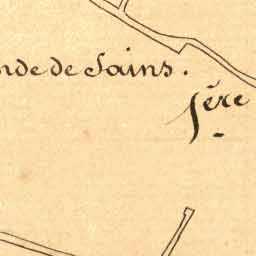 nde de Sains.
Sére